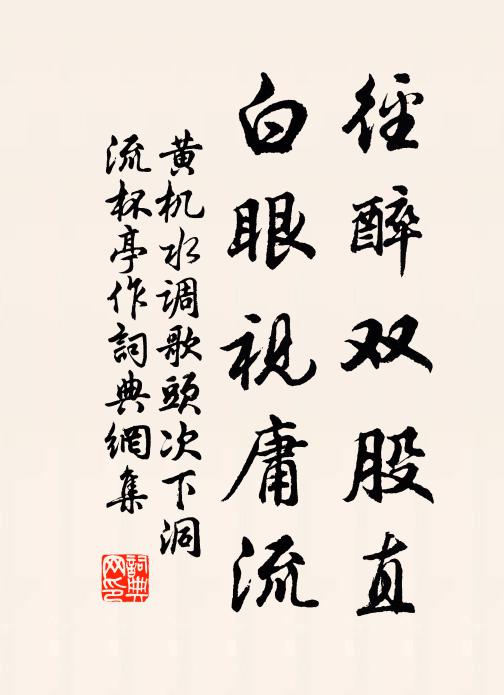 徑醉双股直
白眼視庸流
黄机水调歌頭次下洞
流杯亭作詞典網集
詞典
网印